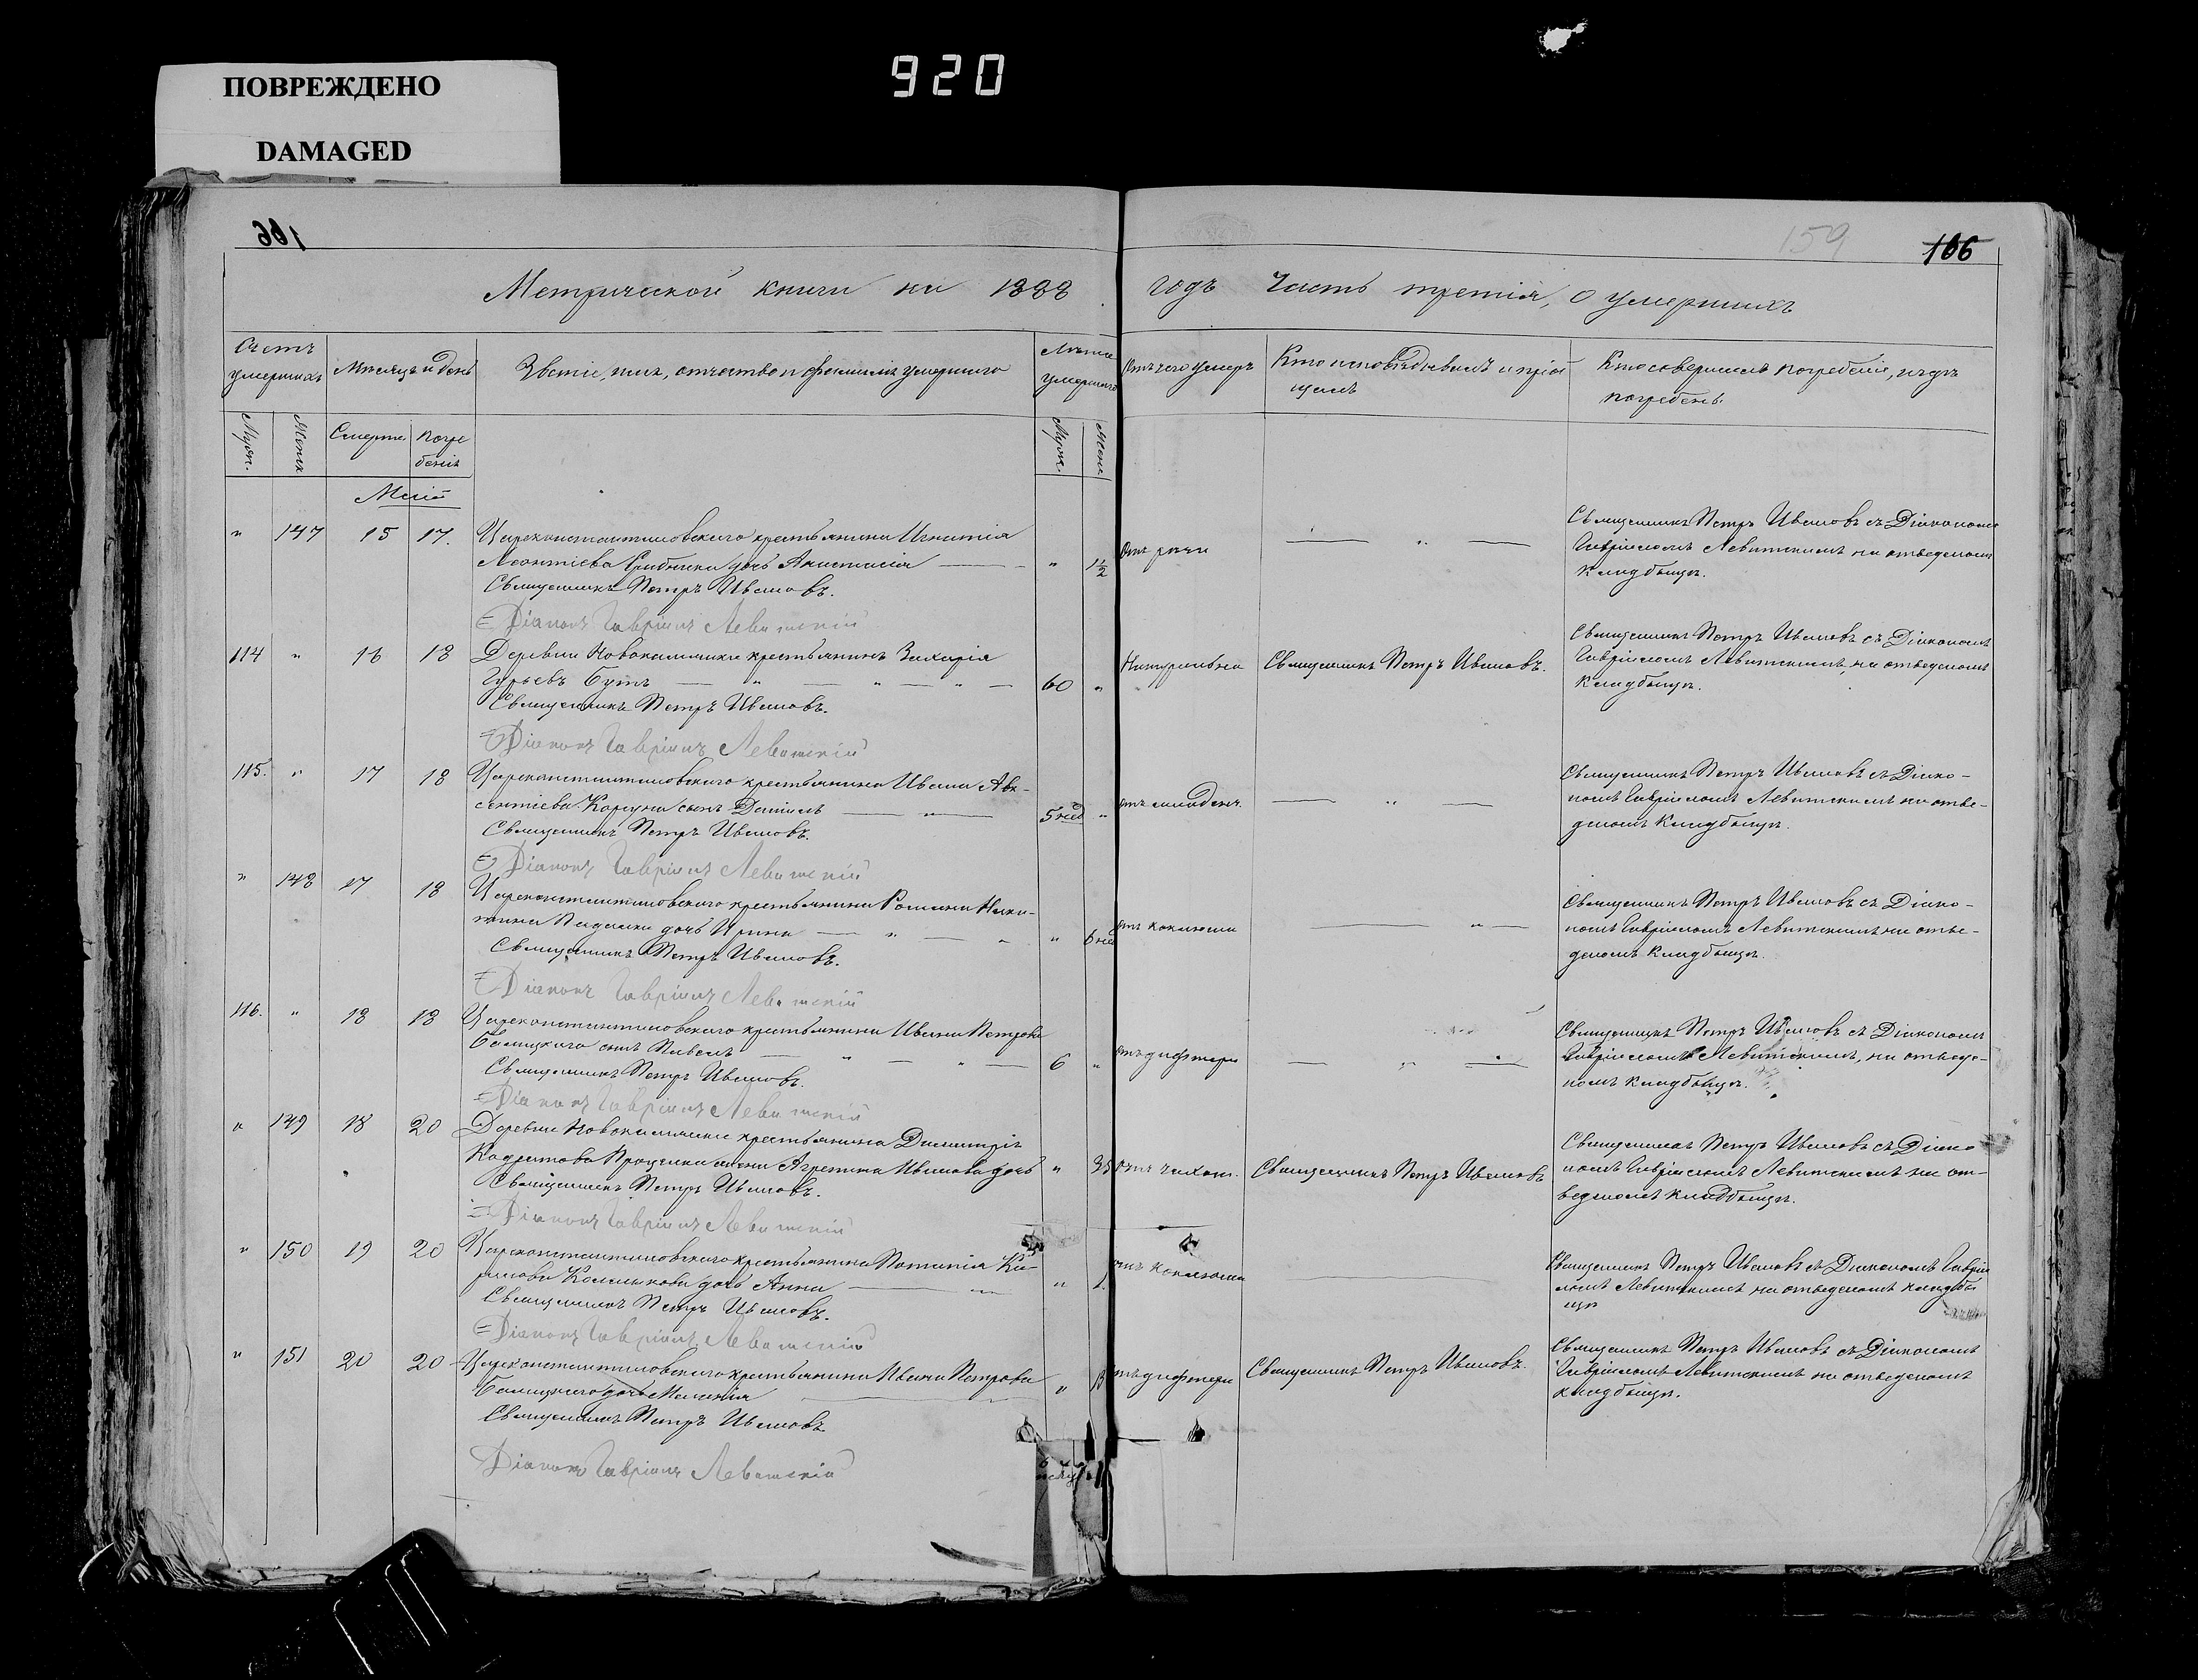 920
ПОВРЕЖДЕНО
DAMAGED
166
159
166
Метрической книги на 1888 годъ Часть третія, о умершихъ
Счетъ умершихъ
Мѣсяцъ и день
Званіе, имя, отчество и фамилія умершаго
Лѣта умершаго
Отъ чего умеръ
Кто исповѣдывалъ и пріоб
щалъ
Кто совершалъ погребеніе, и гдѣ
погребенъ.
Муж.
Женск
Смерти
Погре
бенія
Муж.
Женс
Маій
" 147 15 17. Цареконстантиновскаго крестьянина Игнатія
Леонтіева Грибника дочь Анастасія " 1½
Священникъ Петръ Ивановъ.
Діаконъ Гавріилъ Левитскій
Отъ рожи
"
Священникъ Петръ Ивановъ съ Діакономъ
Гавріиломъ Левитскимъ на отведеномъ
кладбищѣ.
114 " 16 18 Деревни Новокамянки крестьянинъ Захарія
Гурьевъ Бутъ " " " 60 "
Священникъ Петръ Ивановъ.
Діаконъ Гавріилъ Левитскій
Натурально
Священникъ Петръ Ивановъ.
Священникъ Петръ Ивановъ съ Діакономъ
Гавріиломъ Левитскимъ, на отведеномъ
кладбищѣ.
115. " 17 18 Цареконстантиновскаго крестьянина Ивана Авк-
сентіева Коргуна сынъ Даніилъ " 5 нед "
Священникъ Петръ Ивановъ.
Діаконъ Гавріилъ Левитскій
отъ младенч.
"
Священникъ Петръ Ивановъ съ Діако-
номъ Гавріиломъ Левитскимъ на отве-
деномъ кладбищѣ.
" 148 17 18 Цареконстантиновскаго крестьянина Романа Ники-
тина дочь Ирина " " " 6 нед
Священникъ Петръ Ивановъ.
Діаконъ Гавріилъ Левитскій
отъ коклюша
"
Священникъ Петръ Ивановъ съ Діако-
номъ Гавріиломъ Левитскимъ на отве-
деномъ кладбищѣ.
116. " 18 18 Цареконстантиновскаго крестьянина Ивана Петрова
Балицкаго сынъ Павелъ " " 6 "
Священникъ Петръ Ивановъ.
Діаконъ Гавріилъ Левитскій
отъ дифтери
"
Священникъ Петръ Ивановъ съ Діакономъ
Гавріиломъ Левитскимъ, на отведе-
номъ кладбищѣ.
" 149 18 20 Деревни Новокамянки крестьянина Димитрія
Кодратова Проценка жена Агрепина Иванова дочь " 35
Священникъ Петръ Ивановъ.
Діаконъ Гавріилъ Левитскій
отъ чахот.
Священникъ Петръ Ивановъ
Священникъ Петръ Ивановъ съ Діако
номъ Гавріиломъ Левитскимъ на от-
веденомъ кладбищѣ.
" 150 19 20 Цареконстантиновскаго крестьянина Потапія Ки-
рилова Колмыкова дочь Анна " " 1.
Священникъ Петръ Ивановъ.
Діаконъ Гавріилъ Левитскій
отъ коклюша
Священникъ Петръ Ивановъ съ Діакономъ Гаврiи
ломъ Левитскимъ на отведеномъ кладби
щѣ
" 151 20 20 Цареконстантиновскаго крестьянина Ивана Петрова
Балицкаго дочь Меланія "
Священникъ Петръ Ивановъ
Діаконъ Гавріилъ Левитскій
отъ дифтери
Священникъ Петръ Ивановъ.
Священникъ Петръ Ивановъ съ Діакономъ
Гавріиломъ Левитскимъ на отведеномъ
кладбищѣ.